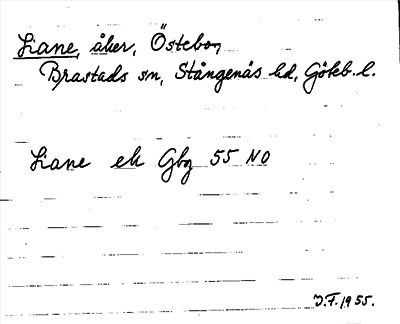 Liane, åker, Östebo,
Brastads sn, Stångenäs hd, Göteb. l.
Liane ek Gbg 55 NO
J.F. 1955.